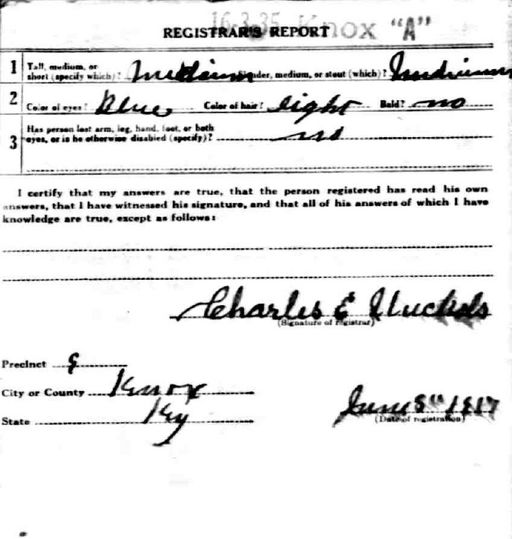 16-3-35. Knox "A"
REGISTRAR'S REPORT
1 Tall, medium, or short (specify which)? Medium Slender, medium, or stout (which)? Medium
2 Color of eyes? Blue Color of hair? light Bald? no
3 Has person lost arm, leg, hand, foot, or both eyes, or is he otherwise disabled (specify)? no
I certify that my answers are true, that the person registered has read his own
answers, that I have witnessed his signature, and that all of his answers of which I have
knowledge are true, except as follows:
Charles E
(Signature of registrar)
Precinct
City or County Knox
State Ky
June 5th 1917
(Date of registration)